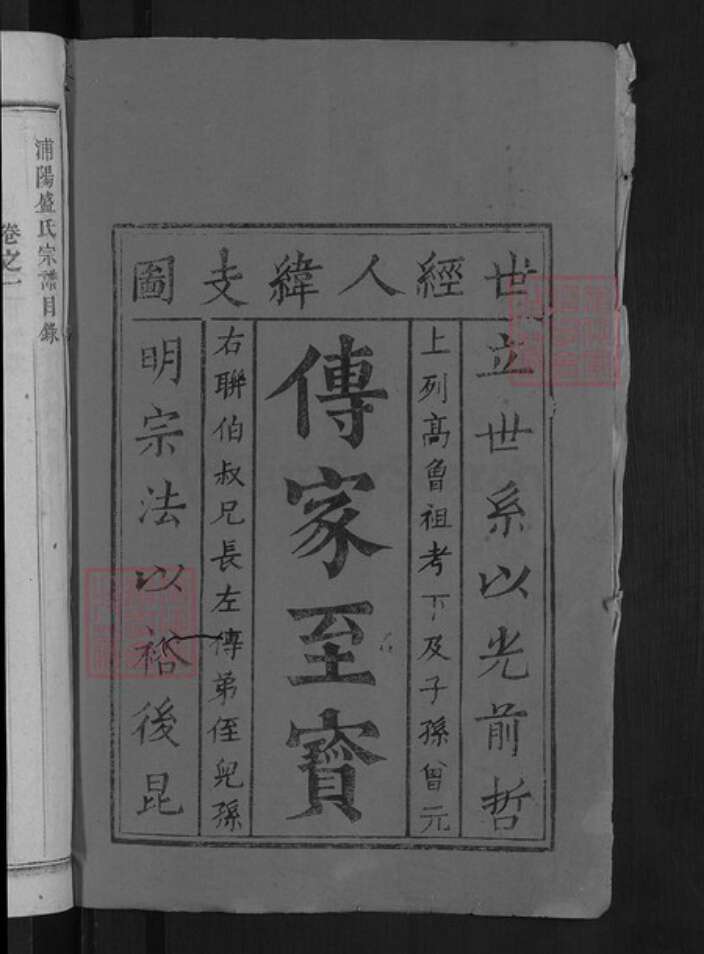 世經人緯支圖
立世系以光前哲
上列高曾祖考下及子孫曾元
傳家至寶
右聯伯叔兄長左傳弟侄兒孫
明宗法以裕後昆
浦陽盛氏宗譜目錄
卷之一